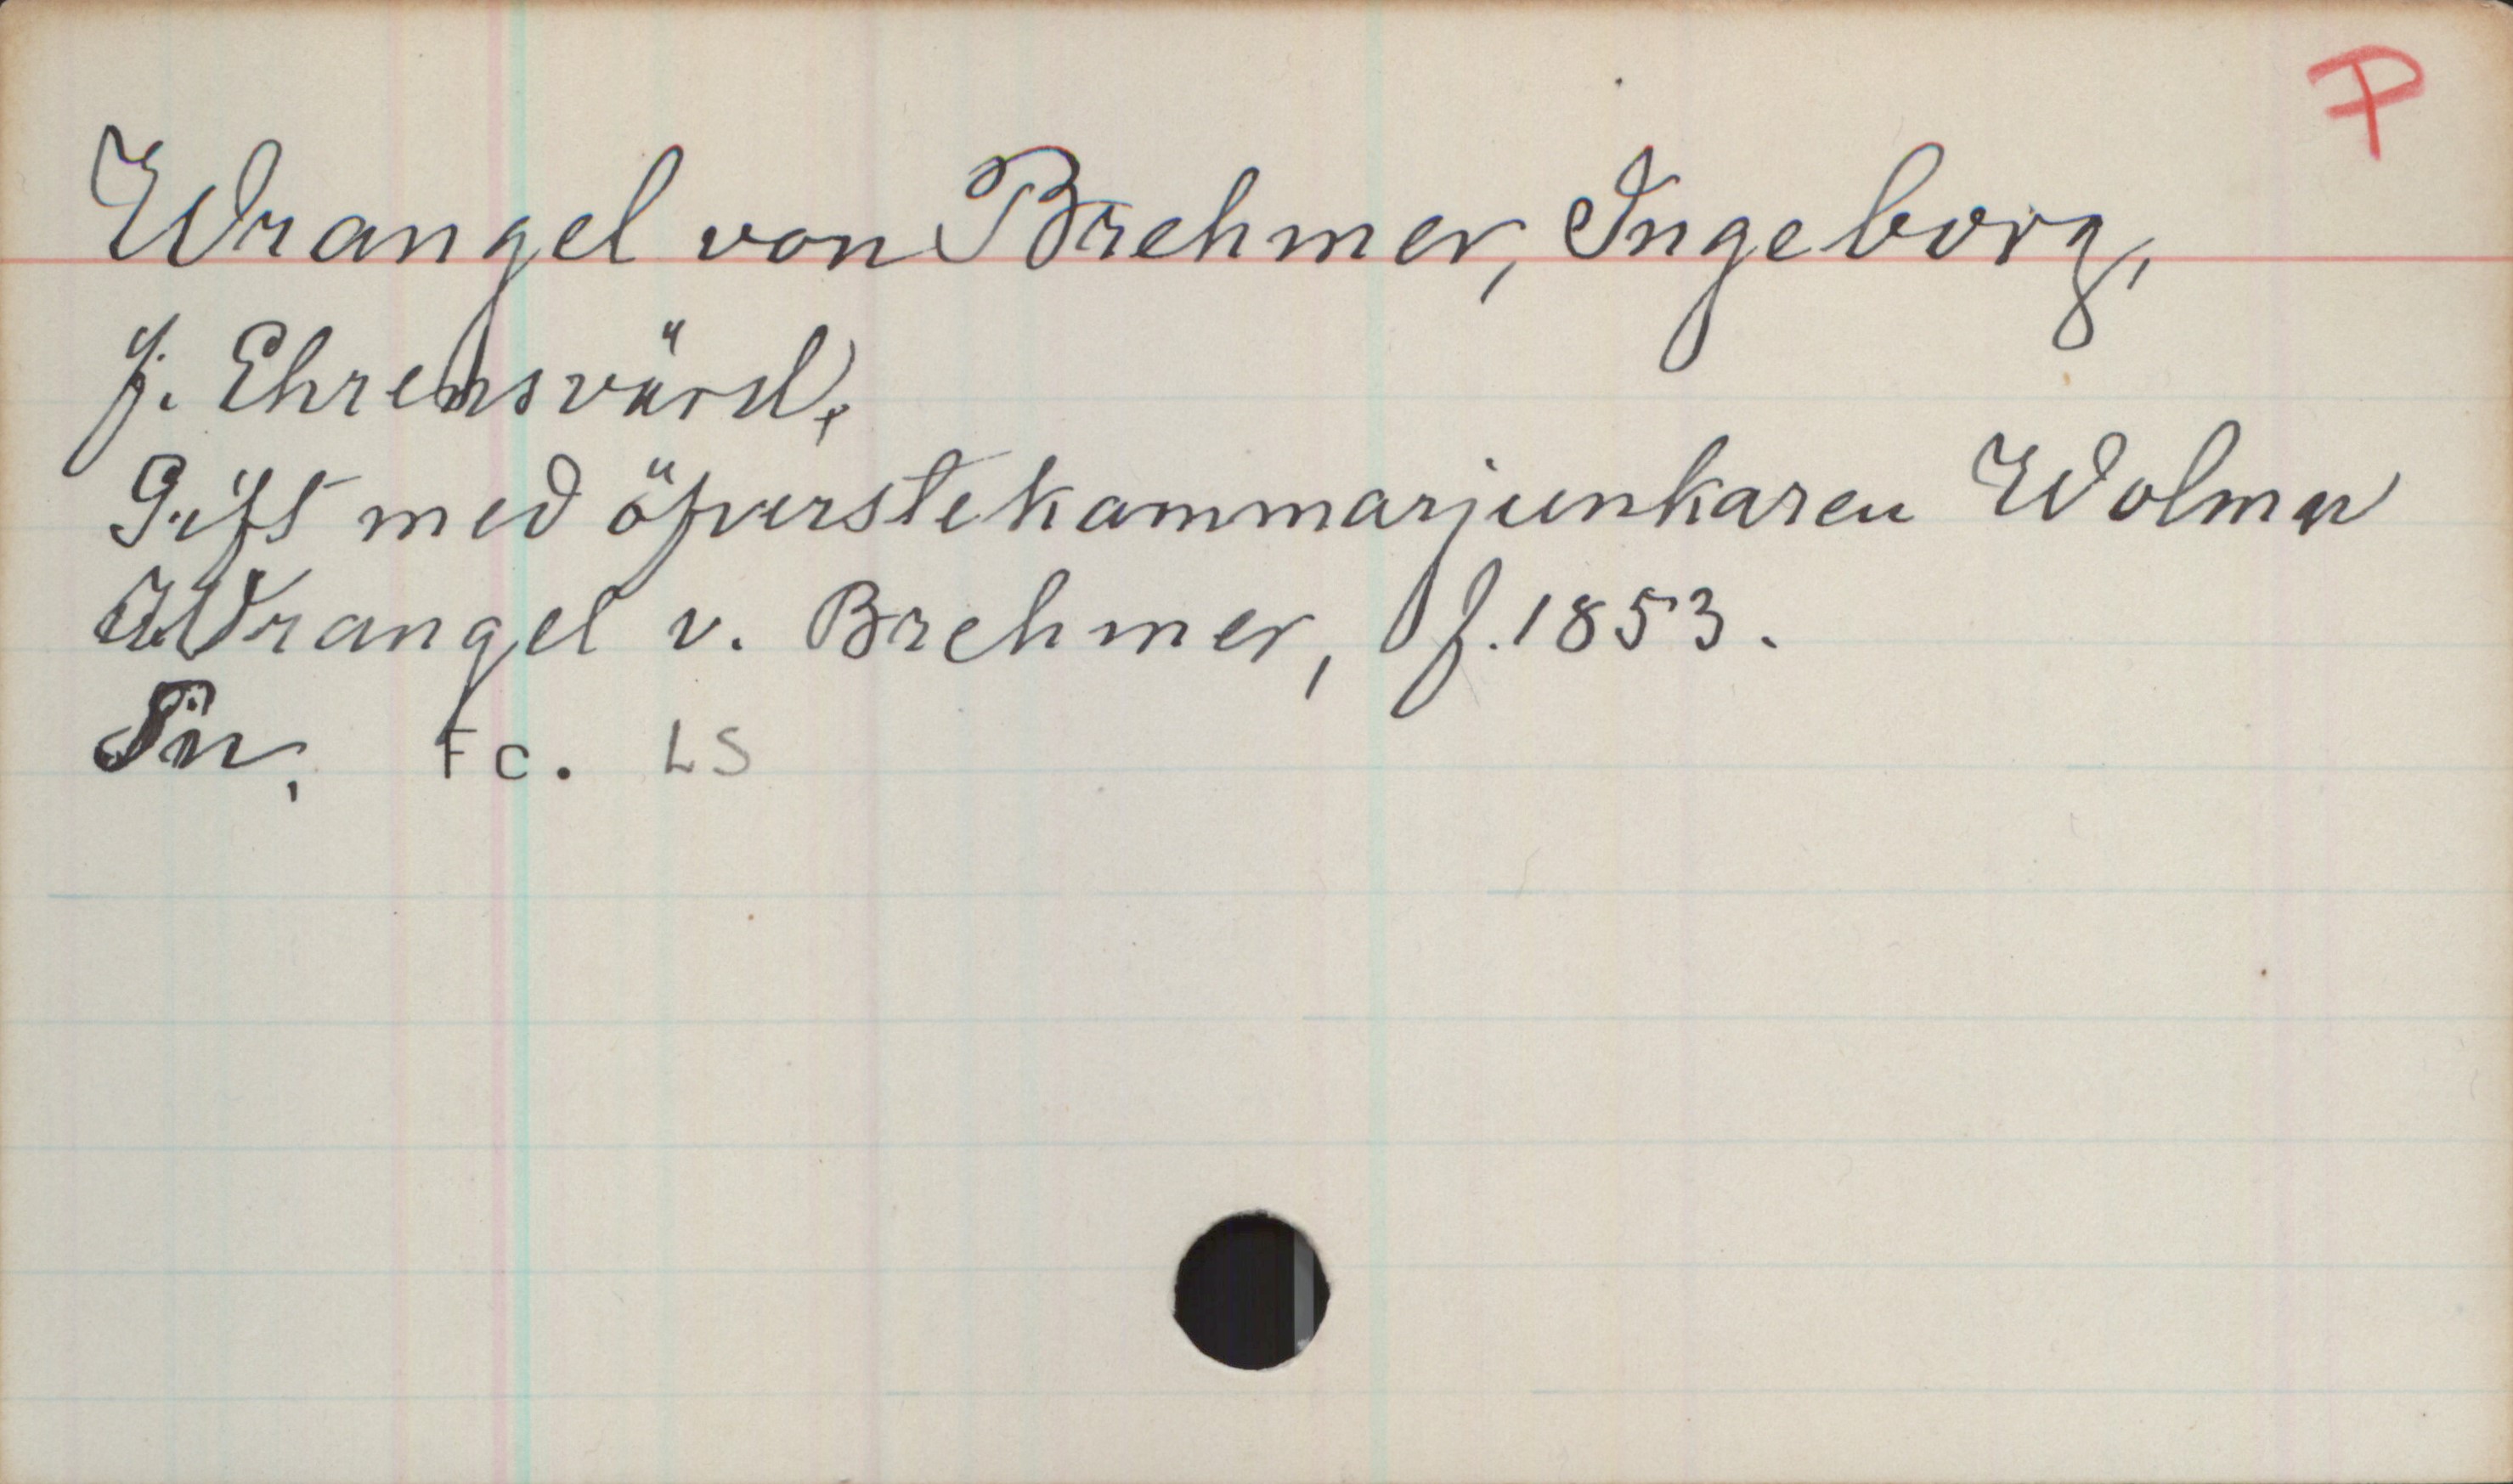 P
Wrangel von Brehmer, Ingeborg,
f. Ehrensvärd,
Gift med öfverstekammarjunkaren Wolmer
Wrangel v. Brehmer, f. 1853.
Fc. LS